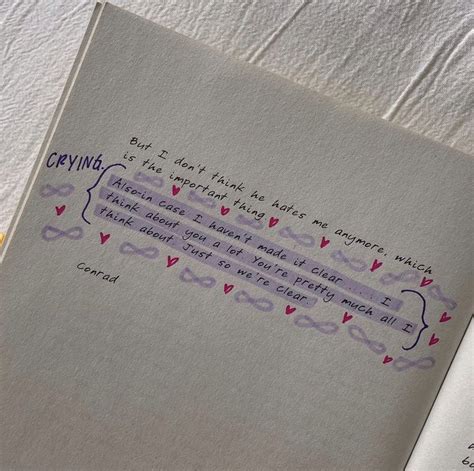 But I don't think he hates me anymore, which
is the important thing
CRYING.
Also-in case I haven't made it clear .... I
think about you a lot You're pretty much all I
think about Just so we're clear.
Conrad